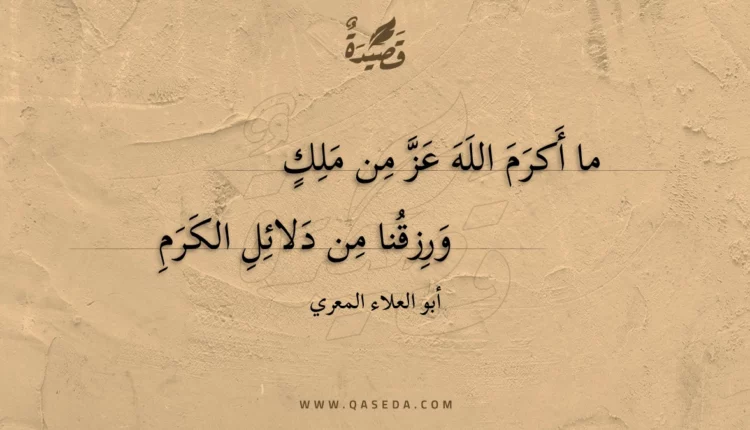 قَصِيدَةٌ
ما أَكرَمَ اللَهَ عَزَّ مِن مَلِكٍ
وَرِزقُنا مِن دَلائِلِ الكَرَمِ
أبو العلاء المعري
WWW.QASEDA.COM